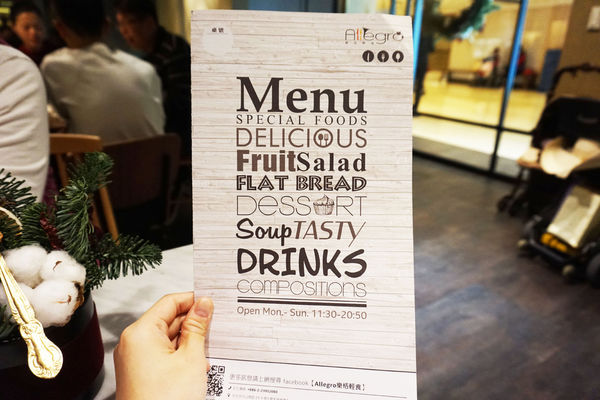 桌號
Allegro
Menu
SPECIAL FOODS
DELICIOUS
FruitSalad
FLAT BREAD
DESSERT
Soup TASTY
DRINKS
COMPOSITIONS
Open Mon.- Sun. 11:30-20:50
更多訊息請上網搜尋 facebook【Allegro樂格輕食】